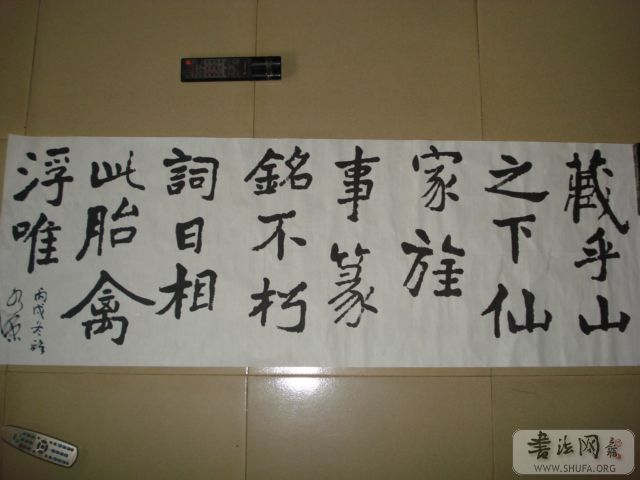 藏乎山
之下仙
家旌
事篆
銘不朽
詞曰相
此胎禽
浮唯
丙戌冬
書法网
WWW.SHUFA.ORG